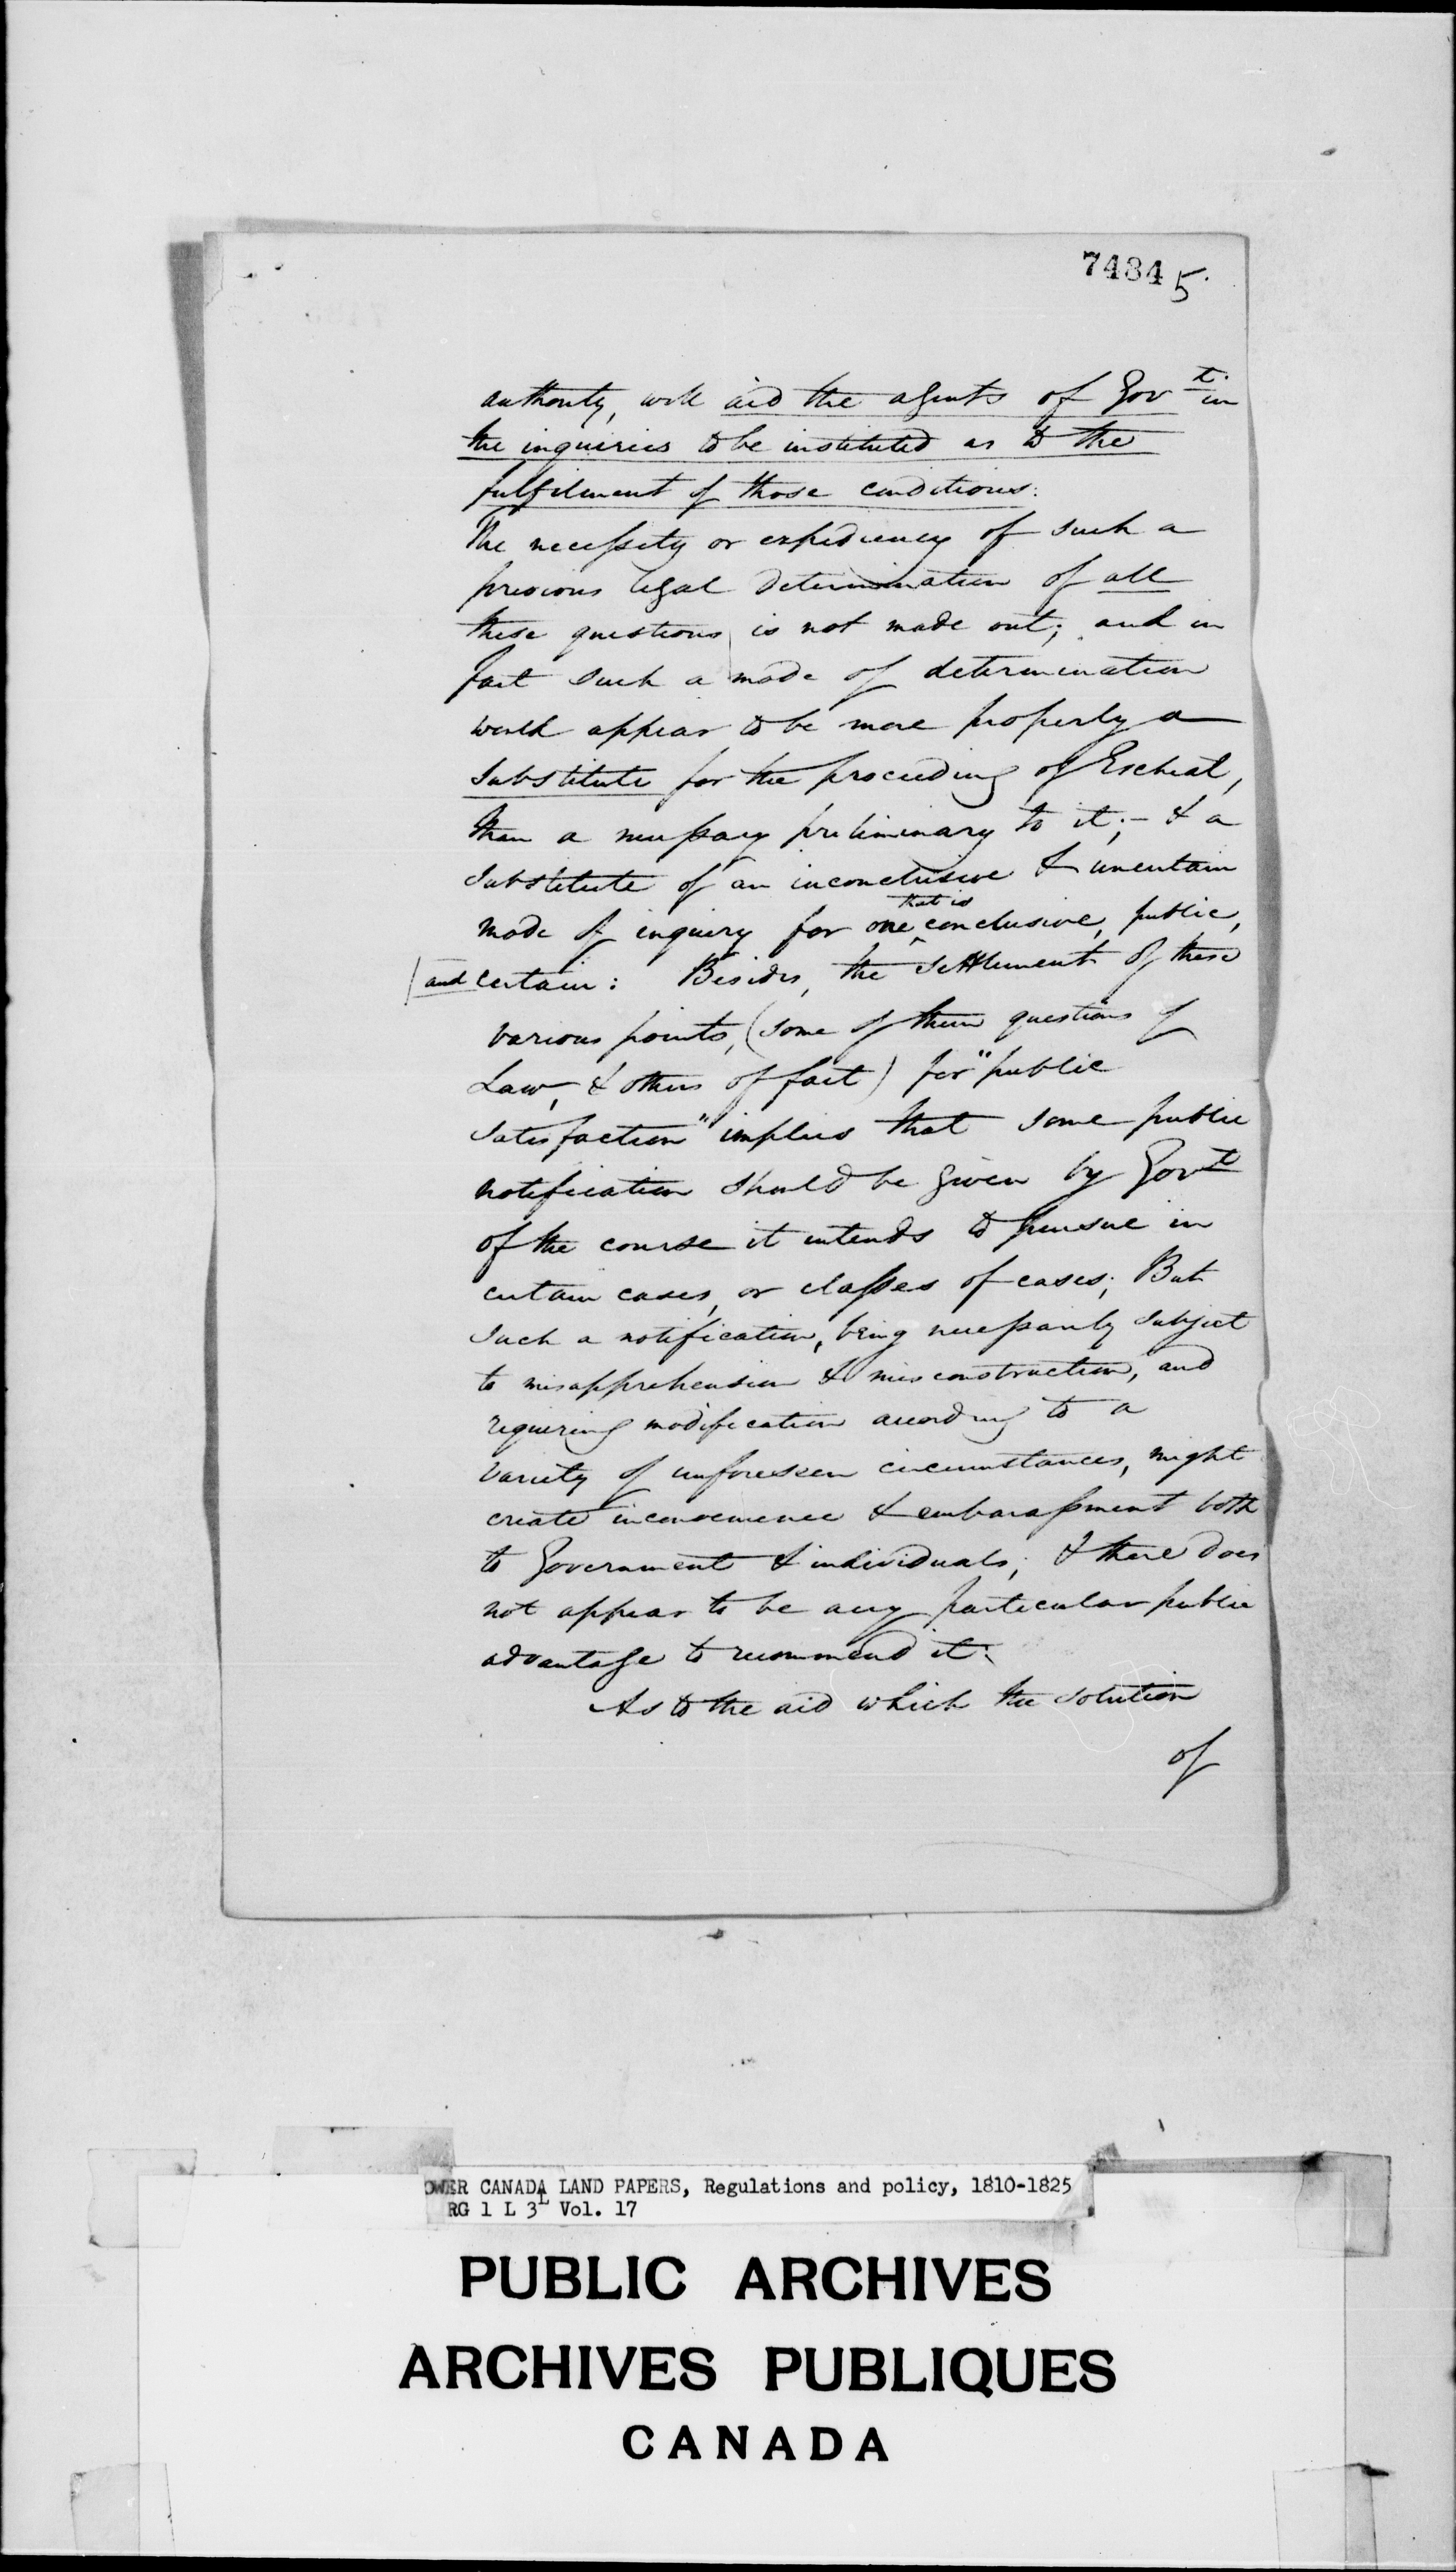 7484 5.
authority, will aid the agents of Govt. in
the inquiries to be instituted as to the
fulfilment of those conditions:
The necessity or expediency of such a
previous legal determination of all
these questions is not made out; and in
fact such a mode of determination
would appear to be more properly a
substitute for the proceeding of Escheat,
than a necessary preliminary to it; – & a
substitute of an inconclusive & uncertain
mode of inquiry for one that is conclusive, public,
and certain: Besides, the settlement of these
various points, (some of them questions of
Law, & others of fact) for "public
satisfaction" implies that some public
notification should be given by Govt
of the course it intends to pursue in
certain cases, or classes of cases; But
such a notification, being necessarily subject
to misapprehension & misconstruction, and
requiring modification according to a
variety of unforeseen circumstances, might
create inconvenience & embarassment both
to Government & individuals; & there does
not appear to be any particular public
advantage to recommend it.
As to the aid which the solution
of
OWER CANADA LAND PAPERS, Regulations and policy, 1810-1825
RG 1 L 3L Vol. 17
PUBLIC ARCHIVES
ARCHIVES PUBLIQUES
CANADA